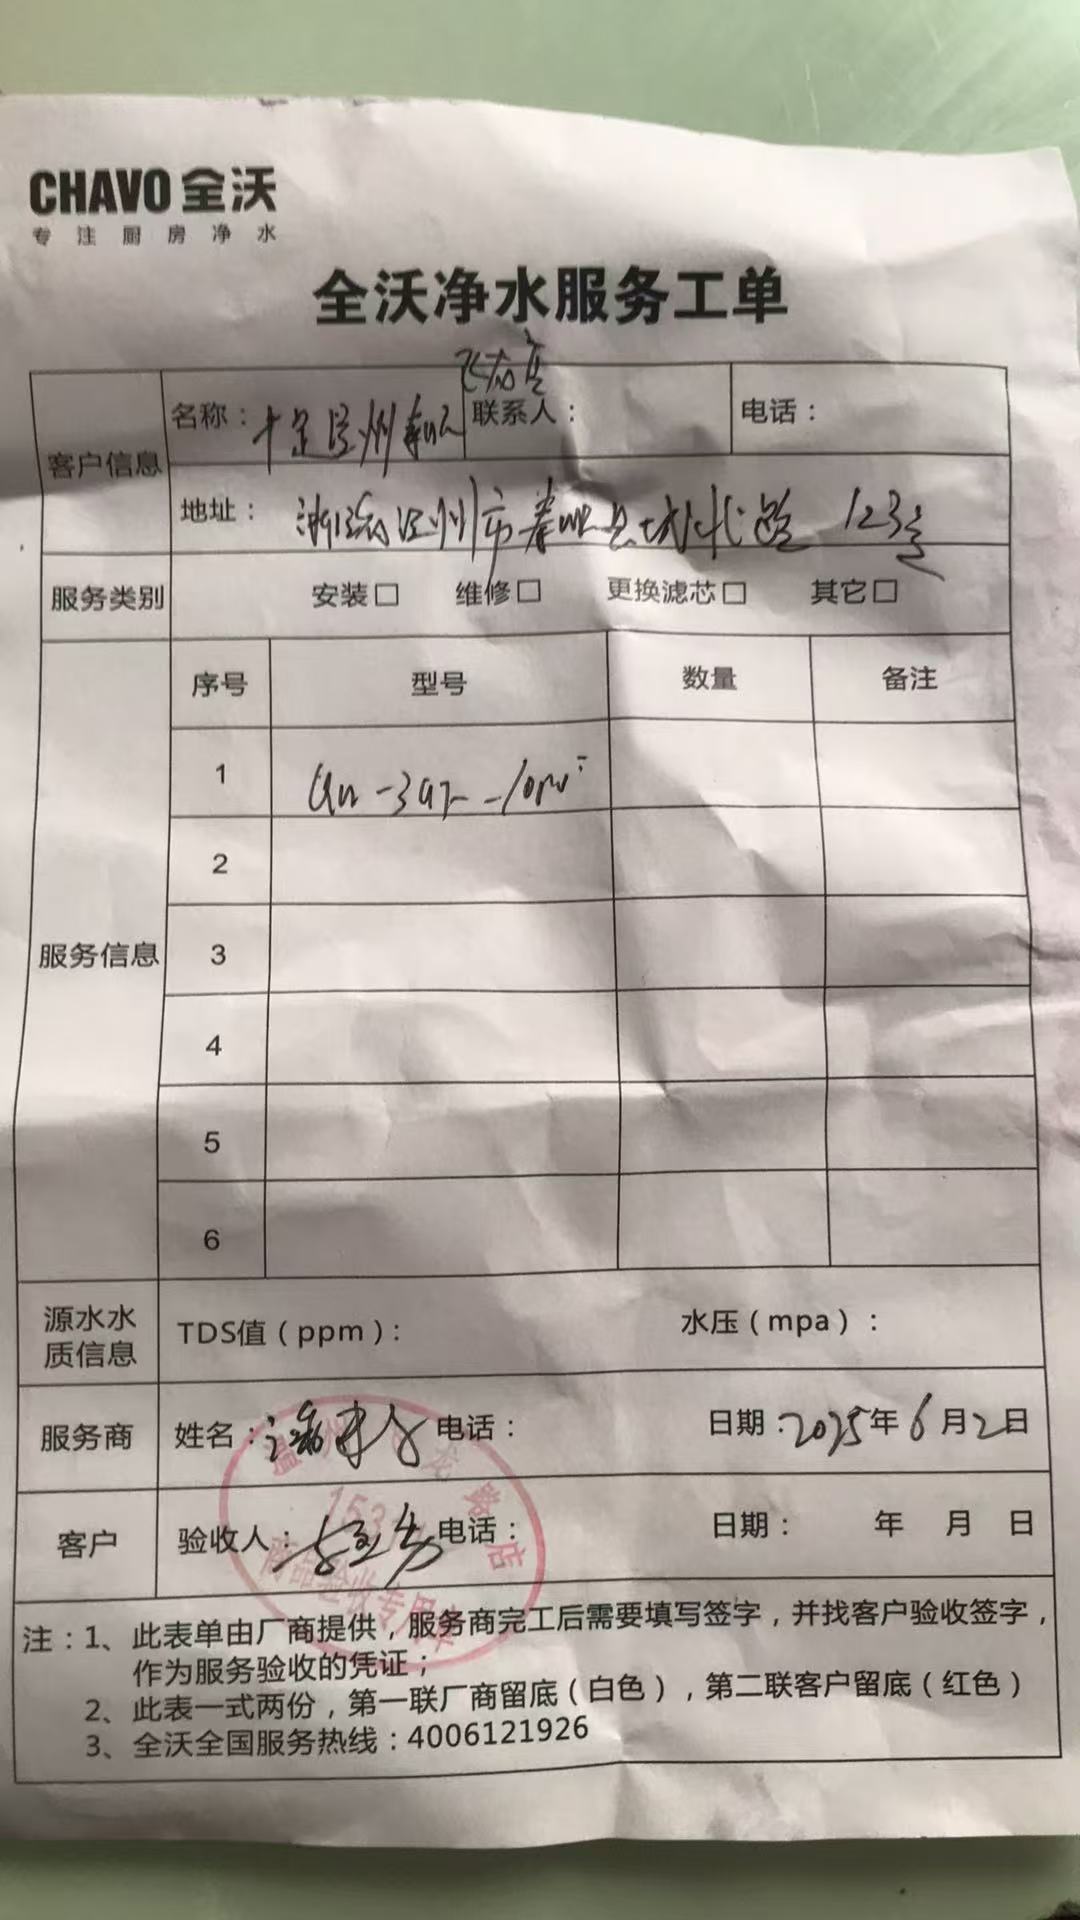 CHAVO 全沃
专注厨房净水
全沃净水服务工单
客户信息 名称：十足温州 联系人： 电话：
地址： 浙江省温州市泰顺县 路 123号
服务类别 安装□ 维修□ 更换滤芯□ 其它□
服务信息 序号 型号 数量 备注
1
2
3
4
5
6
源水水质信息 TDS值（ppm）： 水压（mpa）：
服务商 姓名： 电话： 日期：2025年6月2日
客户 验收人： 电话： 日期： 年 月 日
温州 龙 店
153
商品验收专用章
注：1、此表单由厂商提供，服务商完工后需要填写签字，并找客户验收签字，
作为服务验收的凭证；
2、此表一式两份，第一联厂商留底（白色），第二联客户留底（红色）
3、全沃全国服务热线：4006121926